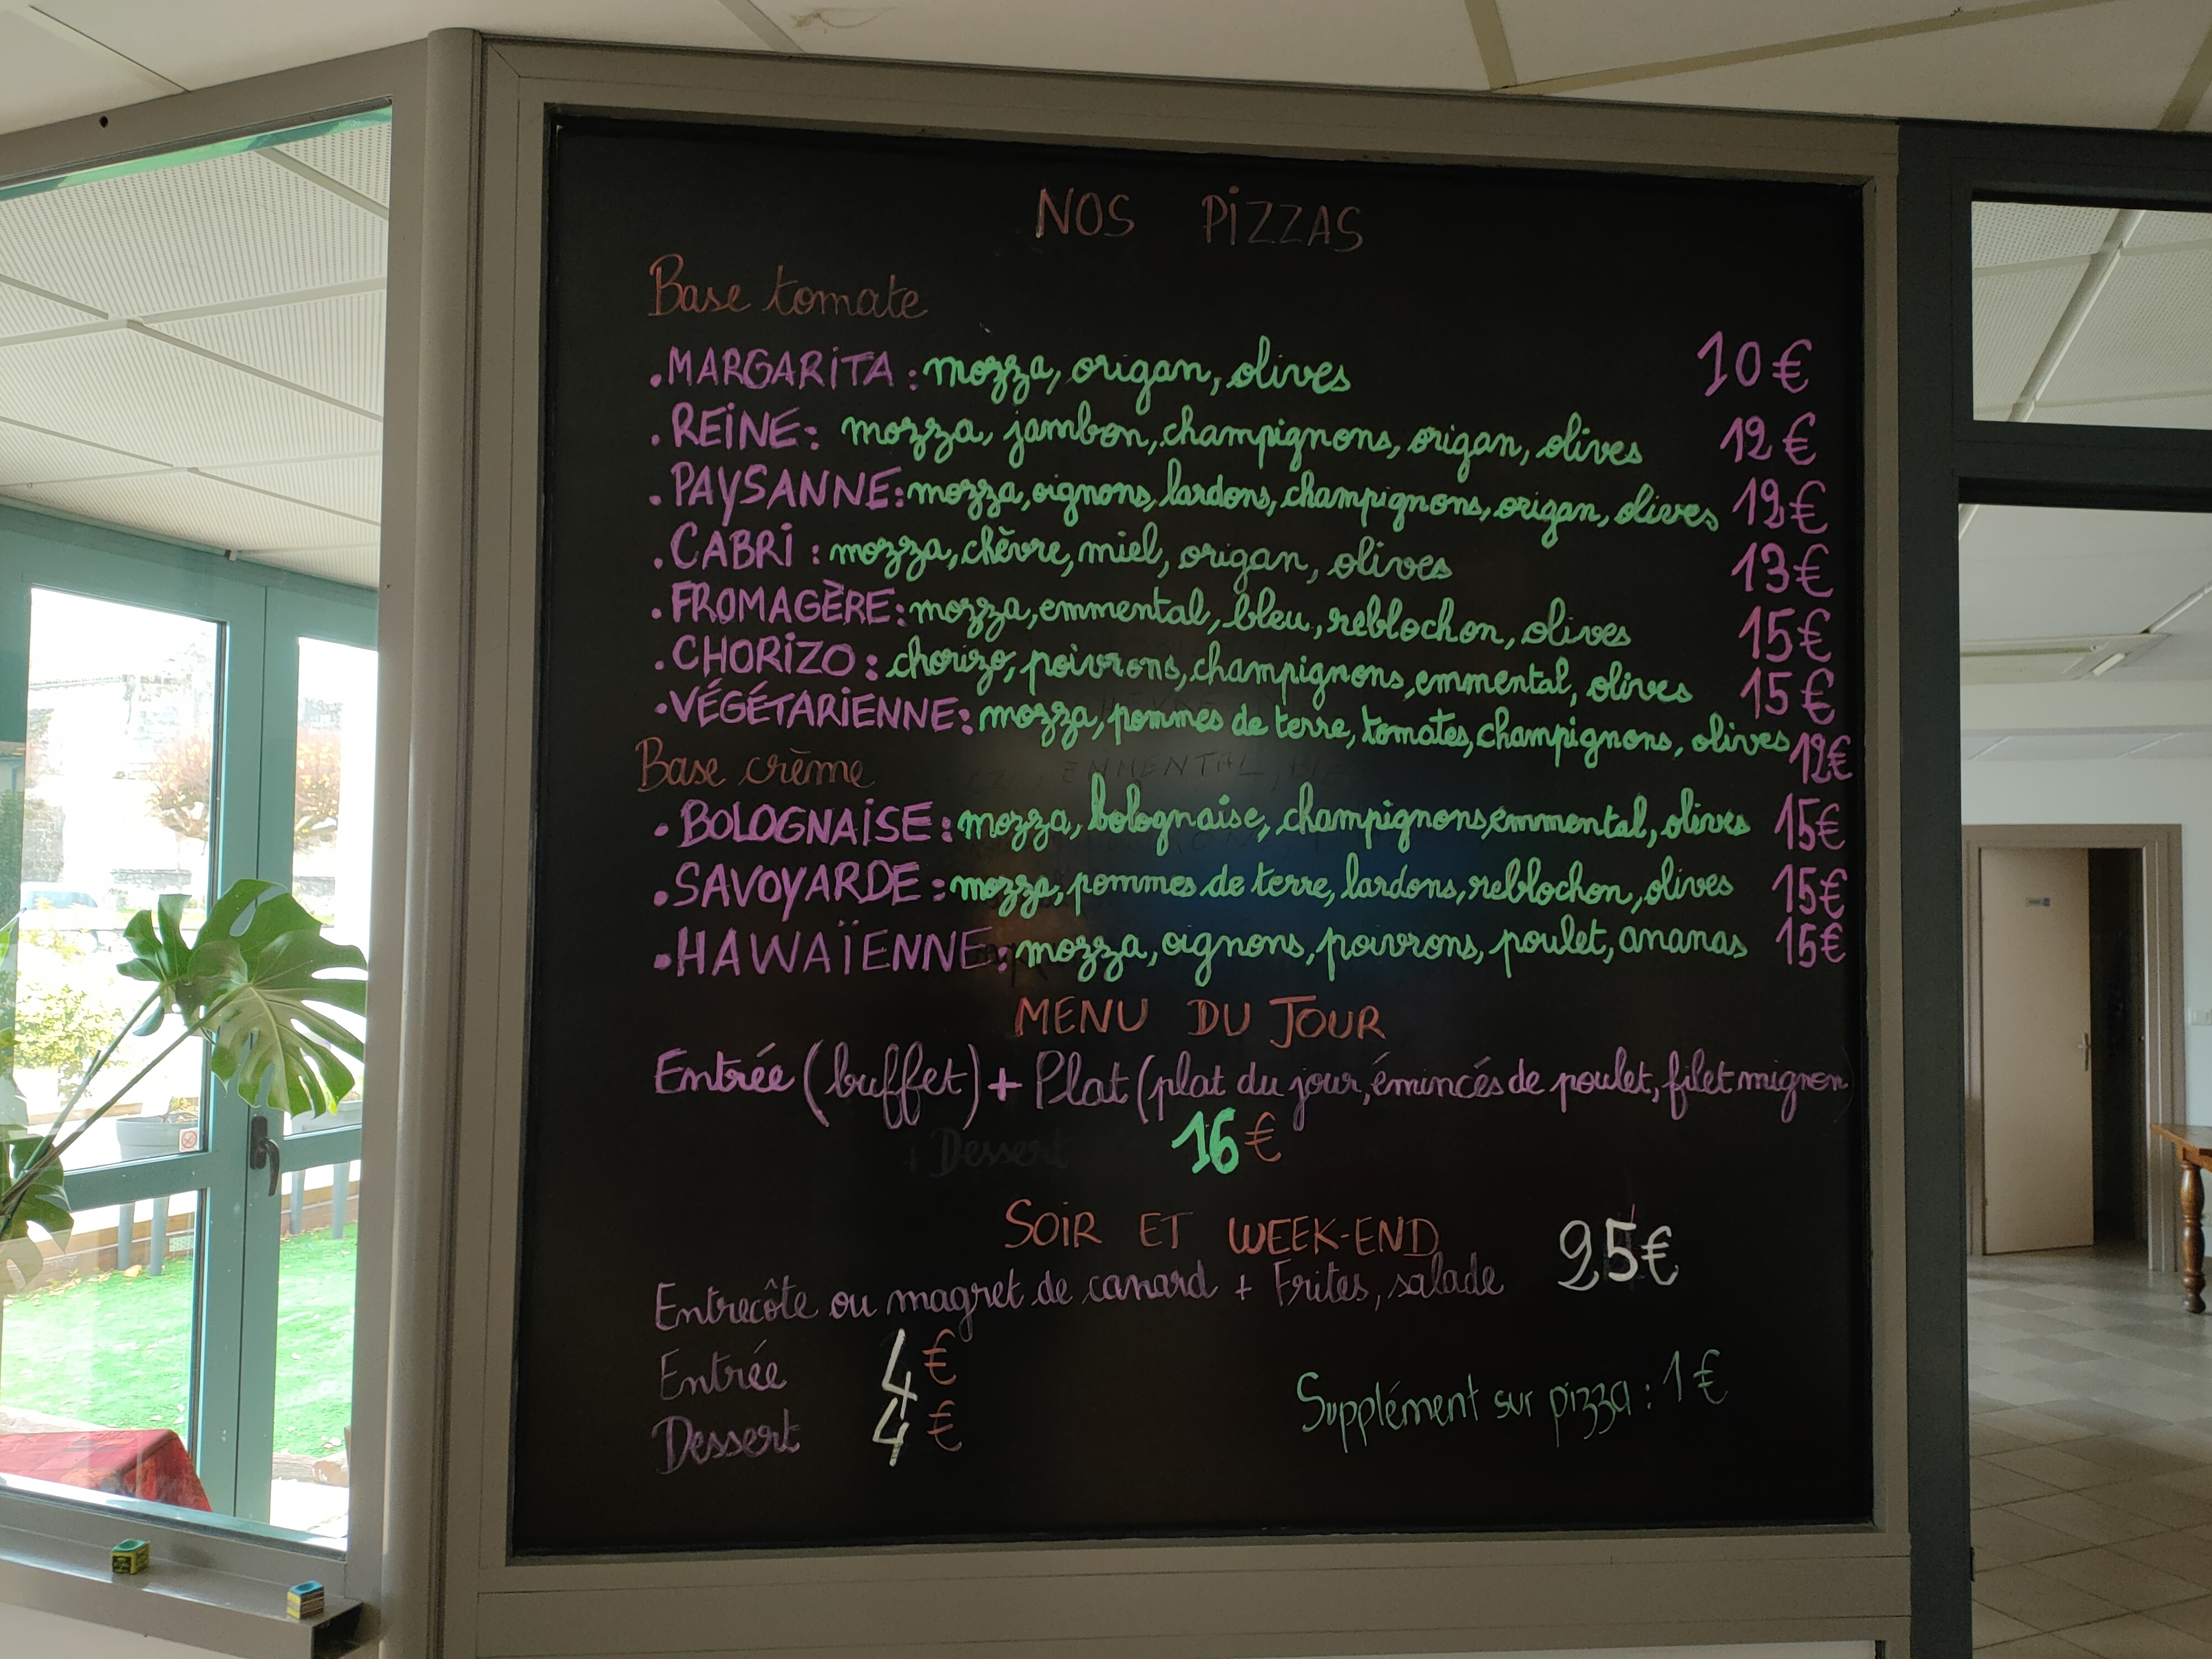 NOS PIZZAS
Base tomate
. MARGARITA : mozza, origan, olives 10 €
. REINE : mozza, jambon, champignons, origan, olives 12 €
. PAYSANNE : mozza, oignons, lardons, champignons, origan, olives 12€
. CABRI : mozza, chèvre, miel, origan, olives 13€
. FROMAGÈRE : mozza, emmental, bleu, reblochon, olives 15€
. CHORIZO : chorizo, poivrons, champignons, emmental, olives 15€
. VÉGÉTARIENNE : mozza, pommes de terre, tomates, champignons, olives 12€
Base crème
. BOLOGNAISE : mozza, bolognaise, champignons, emmental, olives 15€
. SAVOYARDE : mozza, pommes de terre, lardons, reblochon, olives 15€
. HAWAÏENNE : mozza, oignons, poivrons, poulet, ananas 15€
MENU DU JOUR
Entrée (buffet) + Plat (plat du jour, émincés de poulet, filet mignon)
+ Dessert 16€
SOIR ET WEEK-END 25€
Entrecôte ou magret de canard + Frites, salade
Entrée 4 €
Dessert 4 €
Supplément sur pizza : 1 €